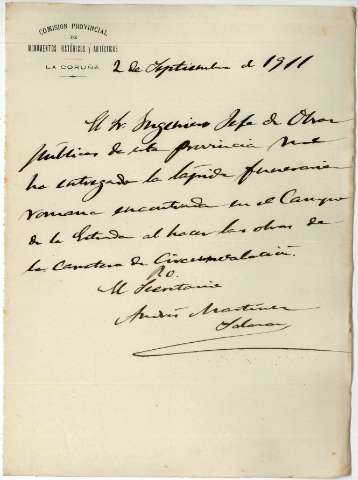 COMISIÓN PROVINCIAL
DE
MONUMENTOS HISTÓRICOS y ARTÍSTICOS
LA CORUÑA
2 de Septiembre de 1911
El Sr. Ingeniero Jefe de Obras
públicas de esta provincia me
ha entregado la lápida funeraria
romana encontrada en el Campo
de la Estrada al hacer las obras de
la Carretera de Circunvalación.
El Secretario
Andrés Martínez
Salazar